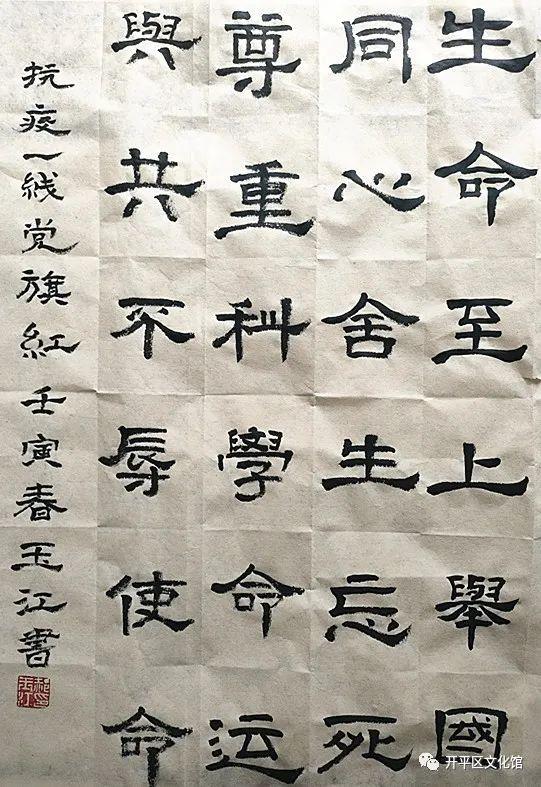 生命至上舉國
同心舍生忘死
尊重科學命运
與共不辱使命
抗疫一线党旗紅壬寅春玉江書
开平区文化馆